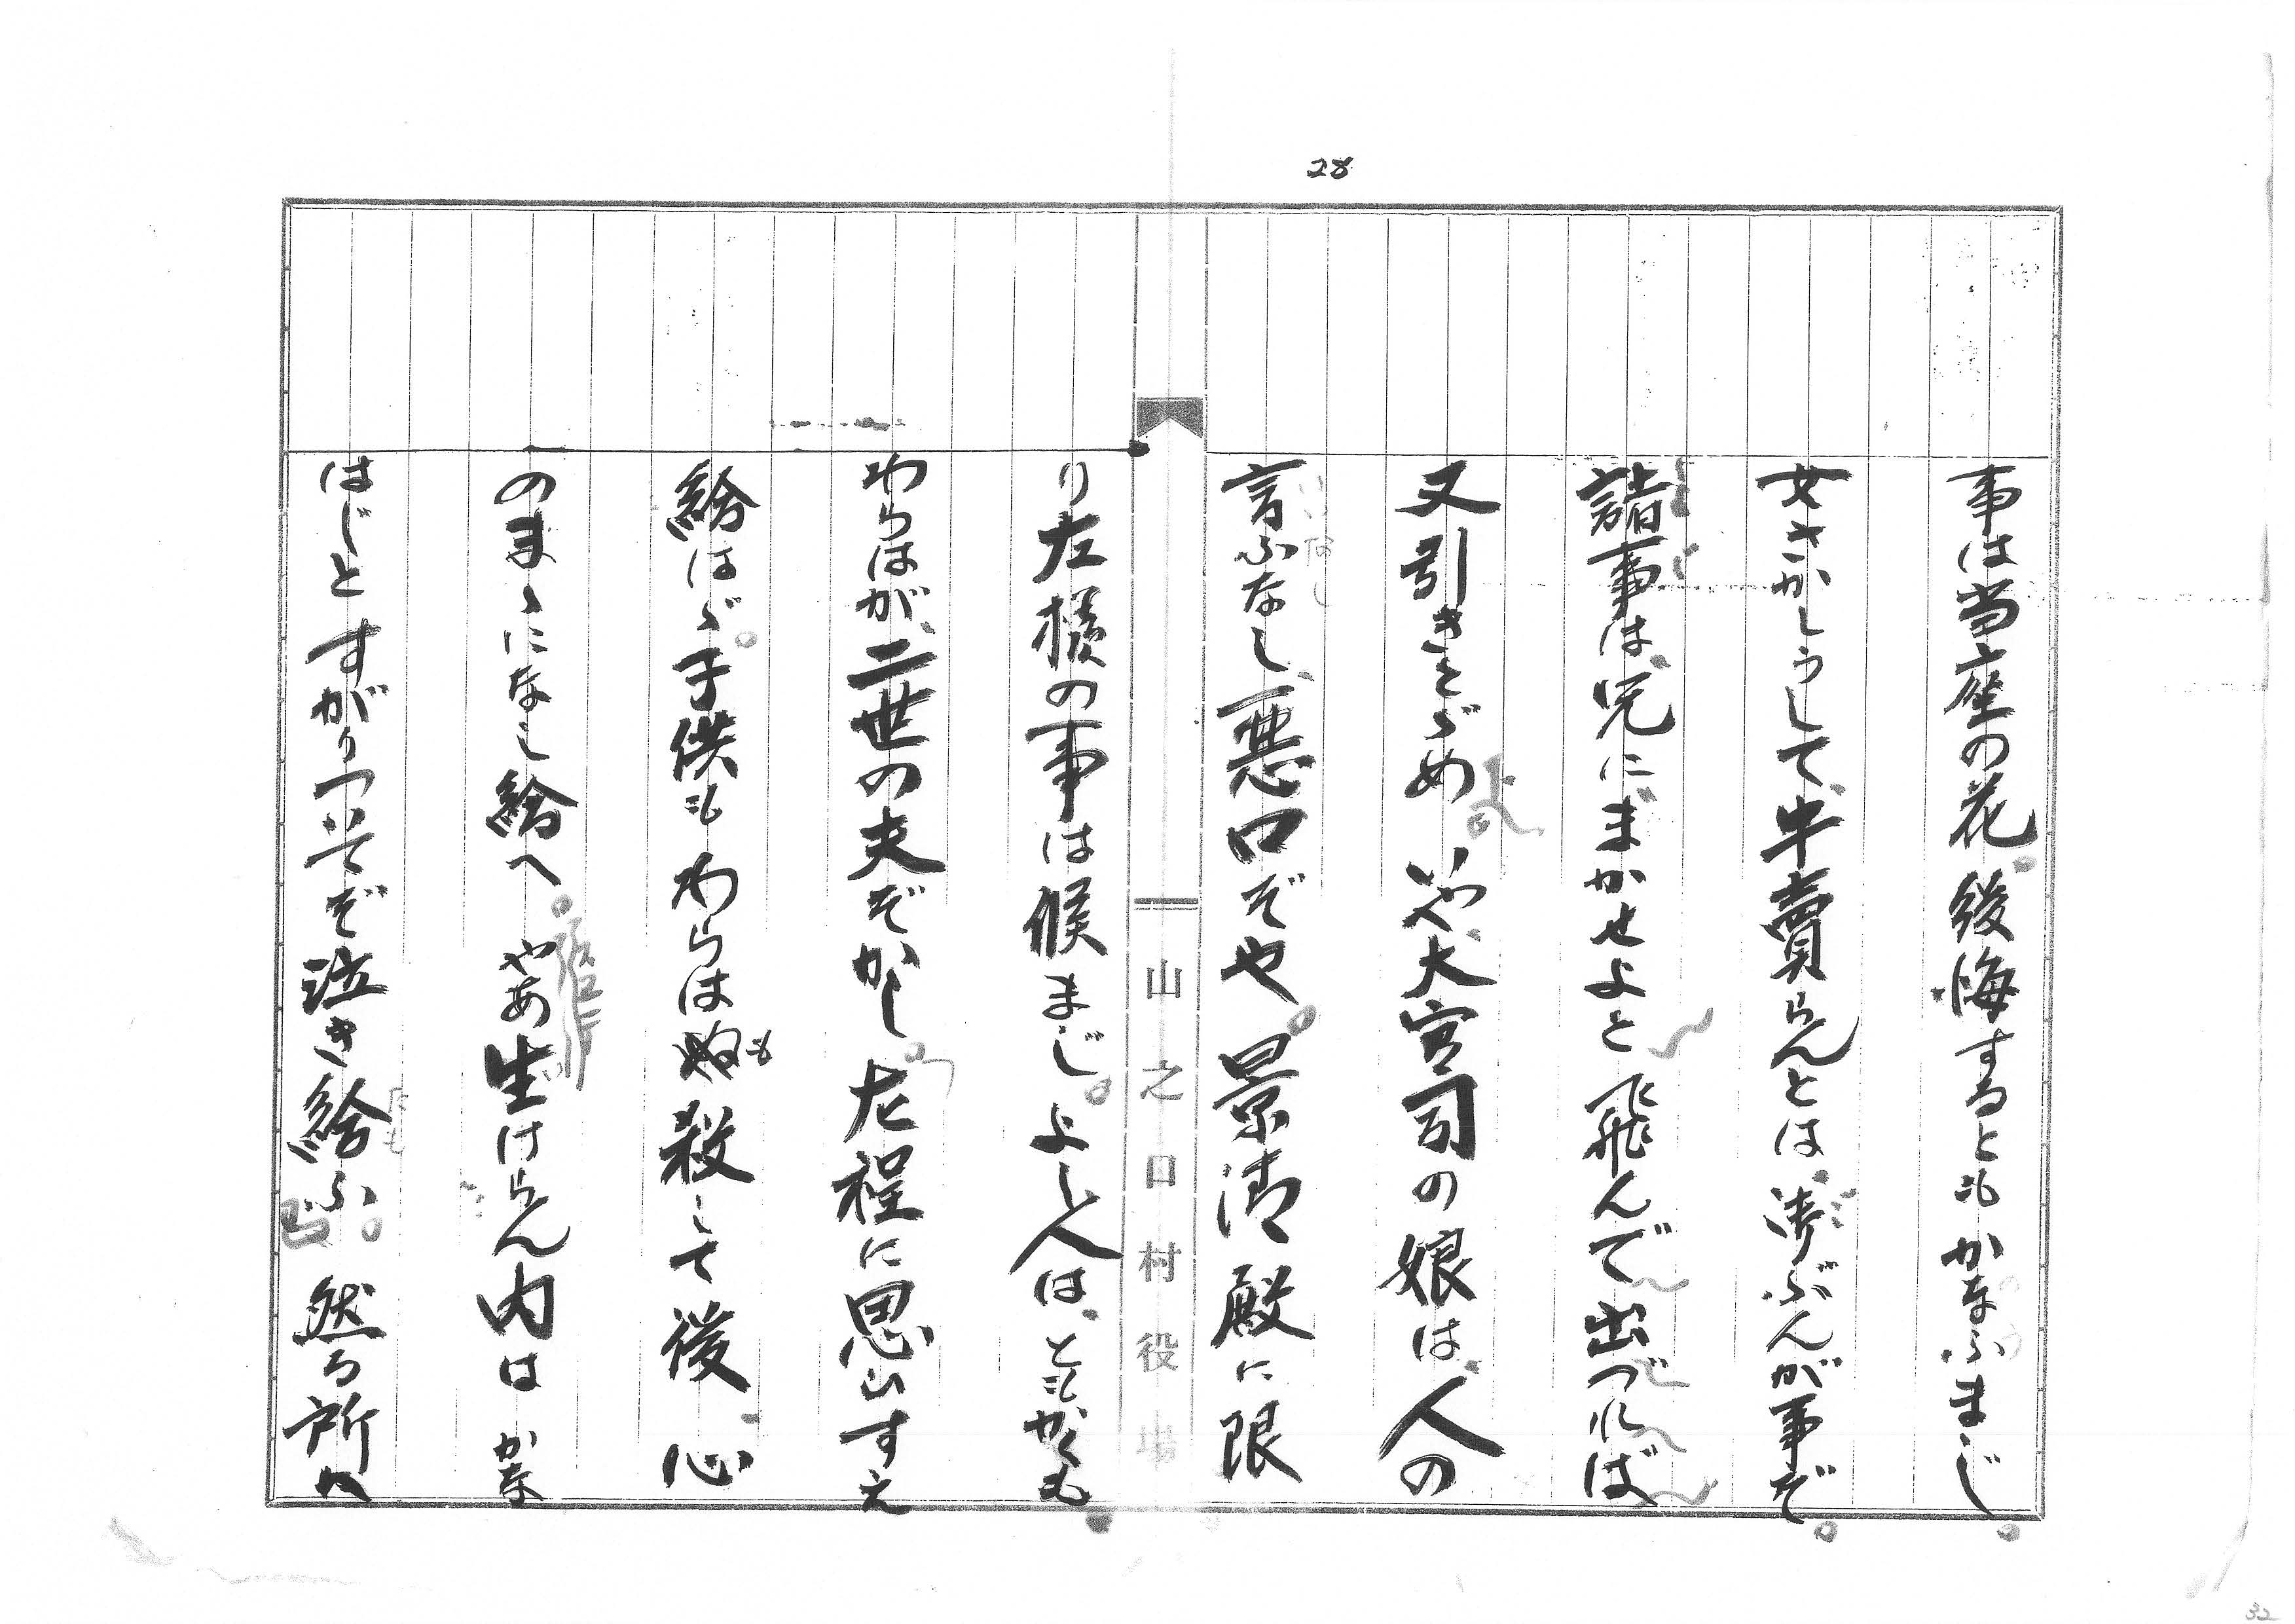 28
事は当座の花。後悔するともかなふまじ。
女さかしうして、牛賣らんとは、凑ぶんが事ぞ。
諸事は、兄にまかせよと飛んで出づれば
又引きとゞめ、いや大宮司の娘は、人の
言ふなし、悪口ぞや。景清殿に限
り左様の事は候まじ。よし人は、ともかくも
わらはが、二世の夫ぞかし。左程に思ひすえ
給はゞ。子供もわらはも殺して後、心
のまゝになし給へ。やあ生けらん内はかな
はじとすがりついてぞ泣き給ふ。然る所へ
山之口村役場
32